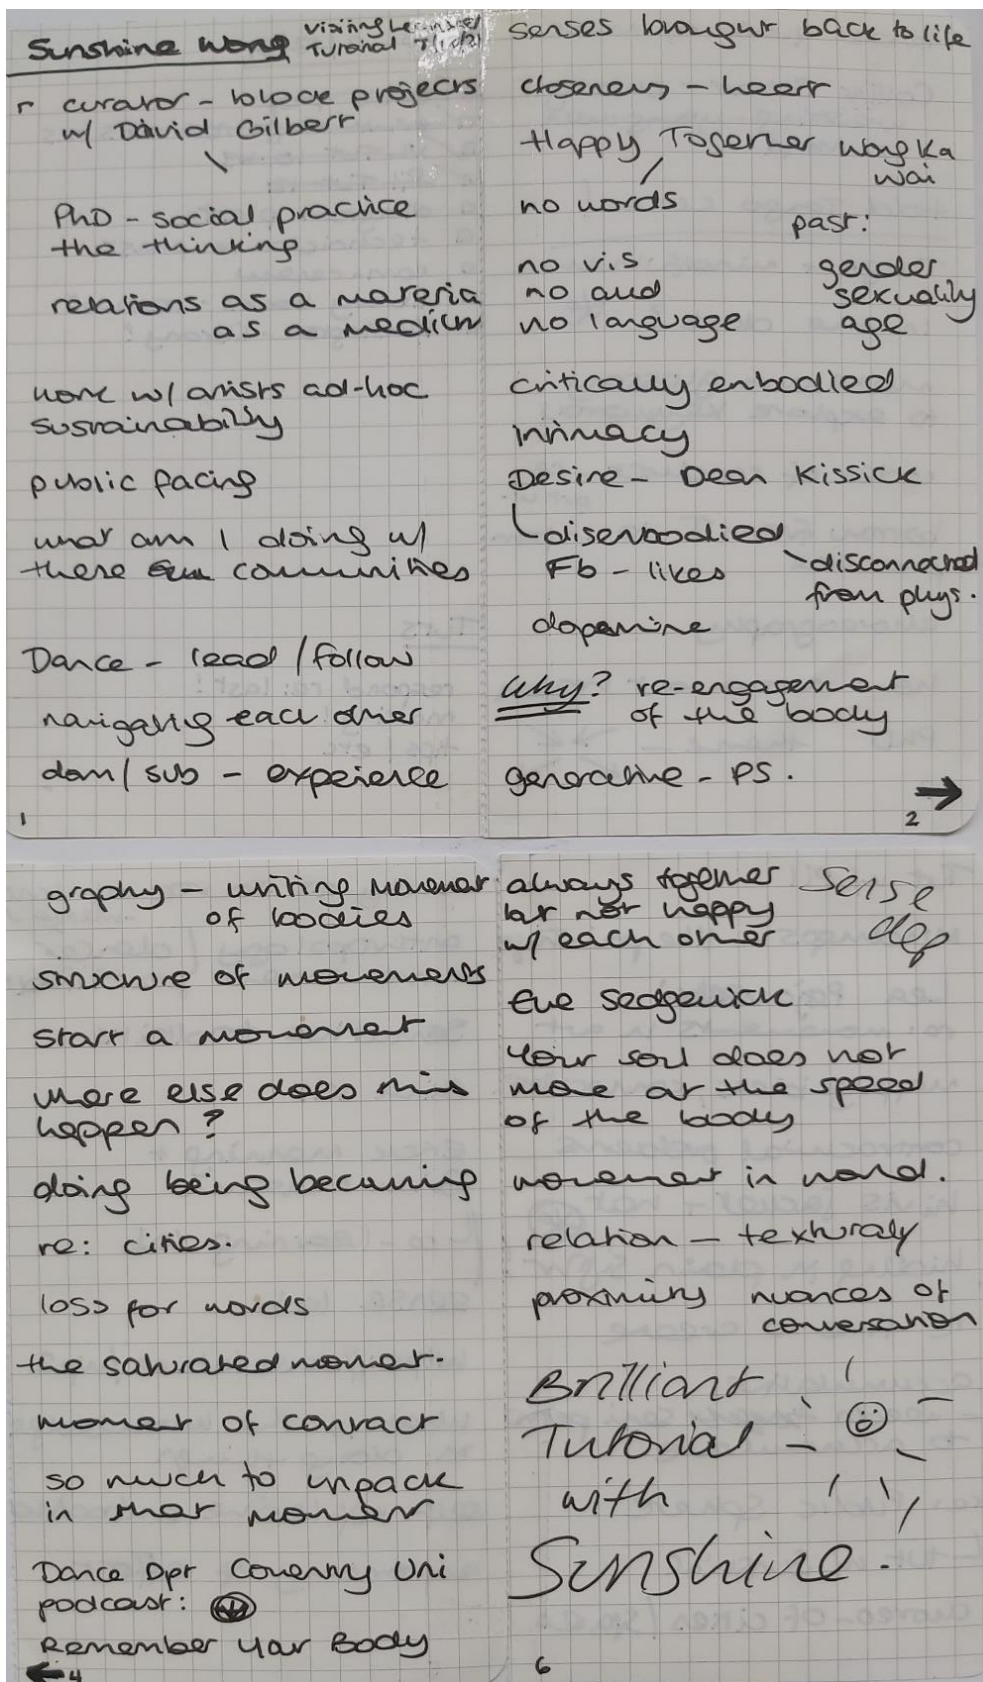 Sunshine Wong
Visiting
Tutorial
curator - block projects
w/ David Gilbert
PhD - social practice
the thinking
relations as a materia
as a medium
work w/ artists ad-hoc
sustainability
public facing
what am I doing w/
these communities
Dance - lead / follow
navigating each other
dom / sub - experience
1
senses brought back to life
closeness - heart
Happy Together Wong Ka
Wai
no words
past:
no vis
gender
no aud
sexuality
no language
age
critically embodied
intimacy
Desire - Dean Kissick
disembodied
Fb - likes
disconnected
from phys.
dopamine
Why? re-engagement
of the body
generative - PS.
2
graphy - writing movement
of bodies
structure of movements
start a movement
where else does this
happen?
doing being becoming
re: cities.
loss for words
the saturated moment.
moment of contact
so much to unpack
in that moment
Dance Dpt Coventry Uni
podcast:
Remember Your Body
4
always together
but not happy
w/ each other
sense
dep
Eve Sedgewick
Your soul does not
move at the speed
of the body
movement in world.
relation - texturaly
proximity nuances of
conversation
Brilliant
Tutorial
with
Sunshine.
6